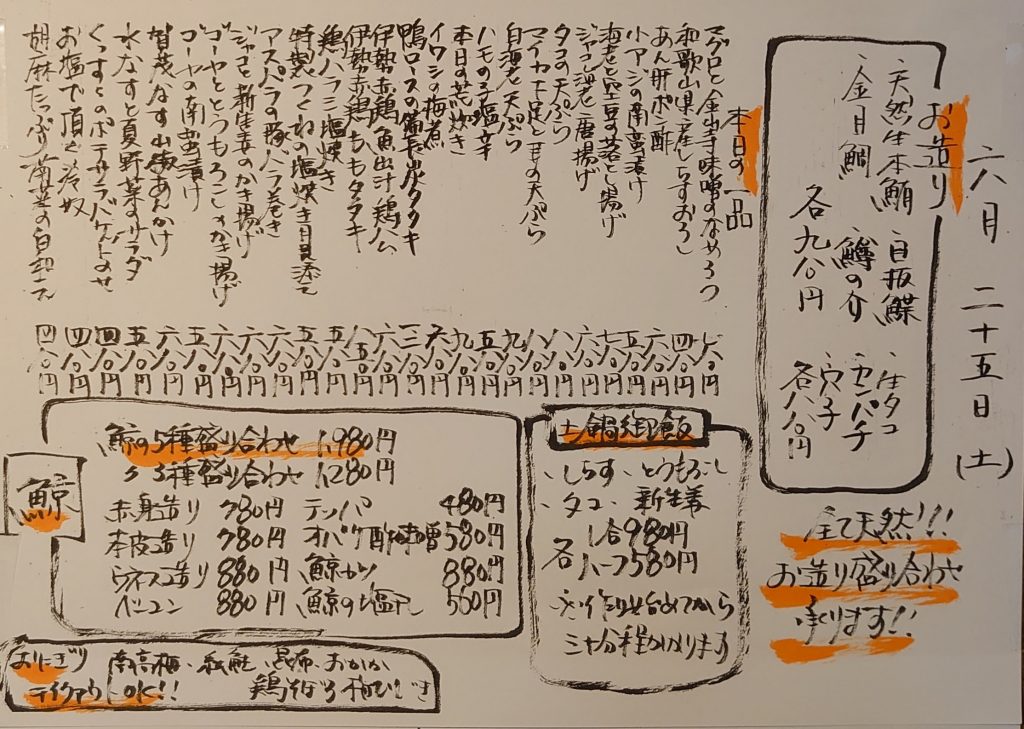 六月二十五日(土)
お造り
、天然生本鮪 、目抜鰈 、生タコ
、金目鯛 、鱒の介 、カンパチ
、穴子
各九八〇円 各八八〇円
全て天然!!!
お造り盛り合わせ
承ります!!
本日の一品
マグロと金山寺味噌のなめろう 七八〇円
和歌山県産しらすおろし 四八〇円
あん肝ポン酢 六八〇円
小アジの南蛮漬け 五八〇円
海老と空豆の落とし揚げ 七八〇円
ジャコ海老唐揚げ 六八〇円
タコの天ぷら 八八〇円
マイカ下足と芽の天ぷら 八八〇円
白海老天ぷら 九八〇円
ハモの子塩辛 五八〇円
本日の荒炊き 九八〇円
イワシの梅煮
鴨ロースの備長炭タタキ
伊勢赤鶏 魚出汁鶏ハム 六八〇円
伊勢赤鶏ももタタキ
鶏ハラミ塩焼き 五八〇円
特製つくねの塩焼き 月見添え 五八〇円
アスパラの豚バラ巻き 六八〇円
ジャコと新生姜のかき揚げ 六八〇円
ゴーヤととうもろこしかき揚げ 六八〇円
ゴーヤの南蛮漬け 五八〇円
賀茂なす山椒あんかけ 六八〇円
水なすと夏野菜のサラダ 五八〇円
くっすくのポテサラバゲットのせ 四八〇円
お塩で頂く冷奴 四八〇円
胡麻たっぷり 青菜の白和え 四八〇円
土鍋御飯
、しらす 、とうもろこし
、タコ 、新生姜
各 1合980円
ハーフ580円
※作り始めてから
三十分程かかります
鯨
鯨の5種盛り合わせ 1,980円
〃 3種盛り合わせ 1,280円
赤身造り 780円 テッパ 480円
本皮造り 780円 オバケ酢味噌 580円
ウネスユ造り 880円 鯨カツ 880円
ベーコン 880円 鯨の塩 580円
おにぎり 南高梅、紅鮭、昆布、おかか
テイクアウトOK!! 鶏そぼろ